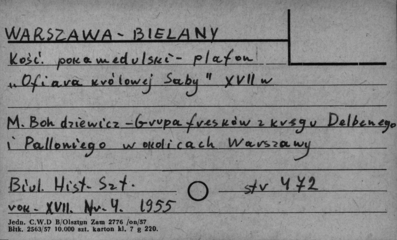 WARSZAWA - BIELANY
Kość. pokamedulski - plafon
„Ofiara królowej Saby" XVII w
M. Bohdziewicz - Grupa fresków z kręgu Delbenego
i Palloniego w okolicach Warszawy
Biul. Hist. Szt. str 472
rok - XVII. Nr. 4. 1955
Jedn. C.W.D B/Olsztyn Zam 2776 /on/57
Bltk. 2563/57 10.000 szt. karton kl. 7 g 220.